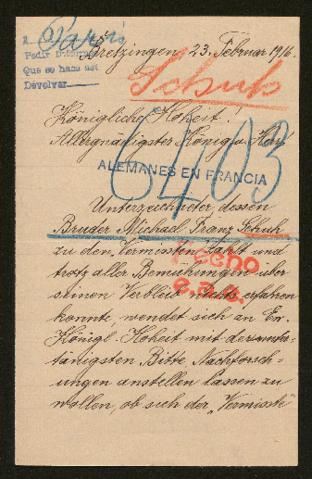 A Paris
Pedir Informes
Que se haga así
Devolver
Bretzingen, 23. Februar 1916.
Schuh
Königliche Hoheit!
Allergnädigster König u. Herr
6403
ALEMANES EN FRANCIA
Unterzeichneter, dessen
Bruder Michael Franz Schuh
zu den Vermissten zählt und
trotz aller Bemühungen über
seinen Verbleib nichts erfahren
konnte, wendet sich an Eu.
Königl. Hoheit mit der unter-
tänigsten Bitte, Nachforsch-
ungen anstellen lassen zu
wollen, ob sich der „Vermisste"